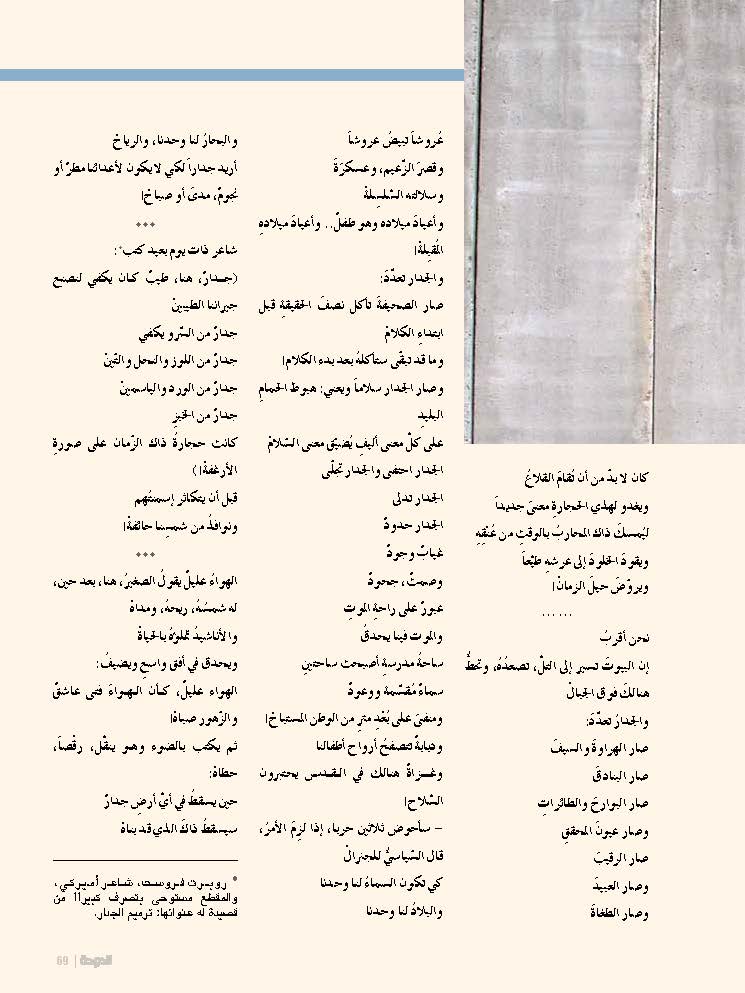 كان لا بدّ من أن تُقامَ القلاعُ
ويغدو لهذي الحجارةِ معنىً جديداً
ليُمسكَ ذاك المحاربُ بالوقتِ من عُنْقِهِ
ويقودَ الخلودَ إلى عرشهِ طيّعاً
ويروّضَ خيلَ الزمانْ!
......
نحن أقربُ
إن البيوتَ تسير إلى التلّ، تصعدُهُ، وتحطُّ
هنالكَ فوق الجبالْ
والجدارُ تعدّدَ:
صار الهراوةَ والسيفَ
صار البنادقَ
صار البوارجَ والطائراتِ
وصار عيونَ المحققِ
صار الرقيبَ
وصار العبيدَ
وصار الطغاةَ
عُروشاً تبيضُ عروشاً
وقصرَ الزّعيم، وعسكرَهَ
وسلالته السّلسِلةْ
وأعيادَ ميلاده وهو طفلٌ.. وأعيادَ ميلادهِ
المُقبِلةْ!
والجدار تعدّدَ:
صار الصحيفةَ تأكل نصفَ الحقيقةِ قبل
ابتداءِ الكلامْ
وما قد تبقّى ستأكلهُ بعد بدء الكلام!
وصار الجدار سلاماً ويعني: هبوط الحمامِ
البليدِ
على كلّ معنى أليفٍ يُضيّق معنى السّلامْ
الجدار اختفى والجدار تجلّى
الجدار تدلى
الجدار حدودٌ
غيابٌ وجودٌ
وصمتٌ، جحودٌ
عبورٌ على راحةِ الموتِ
والموت فينا يحدقُ
ساحةُ مدرسةٍ أصبحت ساحتينِ
سماءٌ مُقسّمة ووعودٌ
ومنفىً على بُعْدِ مترٍ من الوطن المستباحْ!
ودبابةٌ تتصفحُ أرواح أطفالنا
وغــزاةٌ هنالك في القـدس يختبرون
السّلاح!
– سأخوض ثلاثين حربا، إذا لزِمَ الأمرُ،
قال السّياسيُّ للجنرالْ
كي تكون السماءُ لنا وحدنا
والبلادُ لنا وحدنا
والبحارُ لنا وحدنا، والرياحْ
أريد جداراً لكي لا يكون لأعدائنا مطرٌ أو
نجومٌ، مدىً أو صباحْ!
***
شاعر ذات يوم بعيد كتب*:
(جـدارٌ، هنا، طيبٌ كـان يكفي لنصنع
جيراننا الطيبينْ
جدارٌ من السّرو يكفي
جدارٌ من اللوز والنخل والتّينْ
جدارٌ من الورد والياسمينْ
جدارٌ من الخبزِ
كانت حجارةُ ذاك الزّمان على صورةِ
الأرغفةْ!)
قبل أن يتكاثر إسمنتُهم
ونوافذُ من شمسِنا خائفةْ!
***
الهواءُ عليلٌ يقولُ الصغيرُ، هنا، بعد حين،
له شمسُهُ، ريحهُ، ومداهْ
والأناشيدُ تملؤهُ بالحياةْ
ويحدق في أفقٍ واسعٍ ويضيفُ:
الهواء عليلٌ، كـأن الـهـواءَ فتى عاشقٌ
والزّهور صباهْ!
ثم يكتب بالضوء وهـو ينقّل، رقْصاً،
خطاهْ:
حين يسقطُ في أيّ أرضٍ جدارٌ
سيسقطُ ذاكَ الذي قد بناهْ
* روبـرت فـروسـت، شـاعـر أميركي،
والمقطع مستوحى بتصرف كبيرًا من
قصيدة له عنوانها: ترميم الجدار.
69 | الدوحة